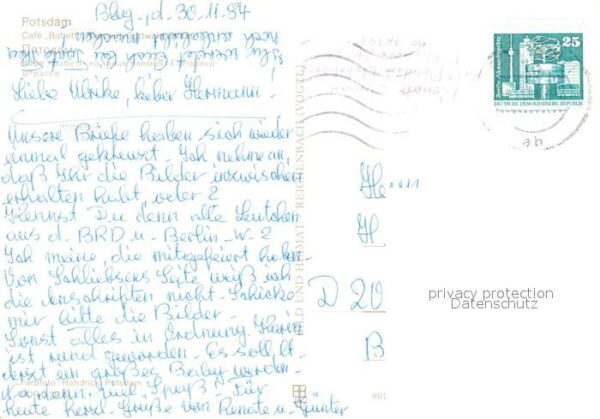 Bbg., d. 30.11.84
Potsdam
Café „Babette"
Потсдам
Liebe Ulrike, lieber Hermann!
Unsere Briefe haben sich wieder
einmal gekreuzt. Ich nehme an,
daß Ihr die Bilder inzwischen
erhalten habt, oder?
Kennst Du denn alle Leutchen
aus d. BRD u. Berlin-W.?
Ich meine, die mitgefeiert haben.
Von Schliebsens Seite weiß ich
die Anschriften nicht. Schicke
mir bitte die Bilder.
Sonst alles in Ordnung. Karin
ist rund geworden. Es soll, lt.
Arzt ein großes Baby werden.
Na dann, viel Spaß. Für
heute herzl. Grüße von Renate u. Günter
Farbfoto: Handrick, Potsdam
BILD UND HEIMAT REICHENBACH (VOGTL)
25
Berlin, Alexanderplatz
DEUTSCHE DEMOKRATISCHE REPUBLIK
Herrn
H
D 20
B
privacy protection
Datenschutz